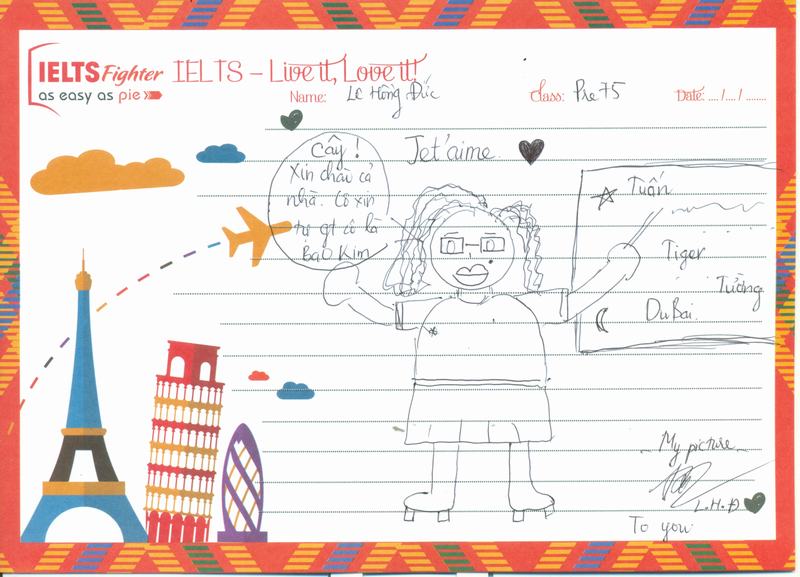 IELTS Fighter
as easy as pie
IELTS – Live it, Love it!
Name: Lê Hồng Đức
Class: Pre 75
Date: .../.../......
Jet'aime
Xin chào cả
nhà. Cô xin
tự gt cô là
Bảo Kim
Tuấn
Tiger
Tường
DuBai
My picture
L.H.Đ
To you